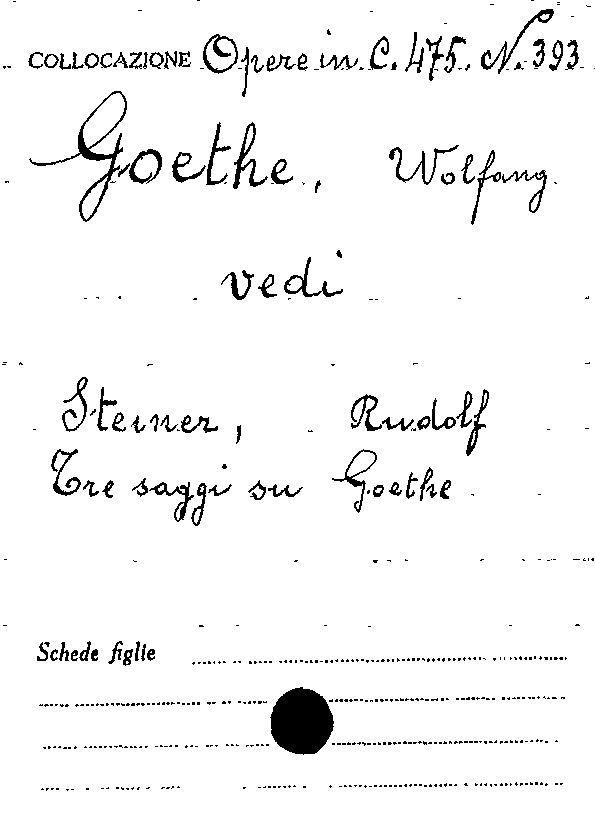 COLLOCAZIONE Opere in C. 475. N. 393
Goethe, Wolfang.
vedi
Steiner, Rudolf
Tre saggi su Goethe.
Schede figlie